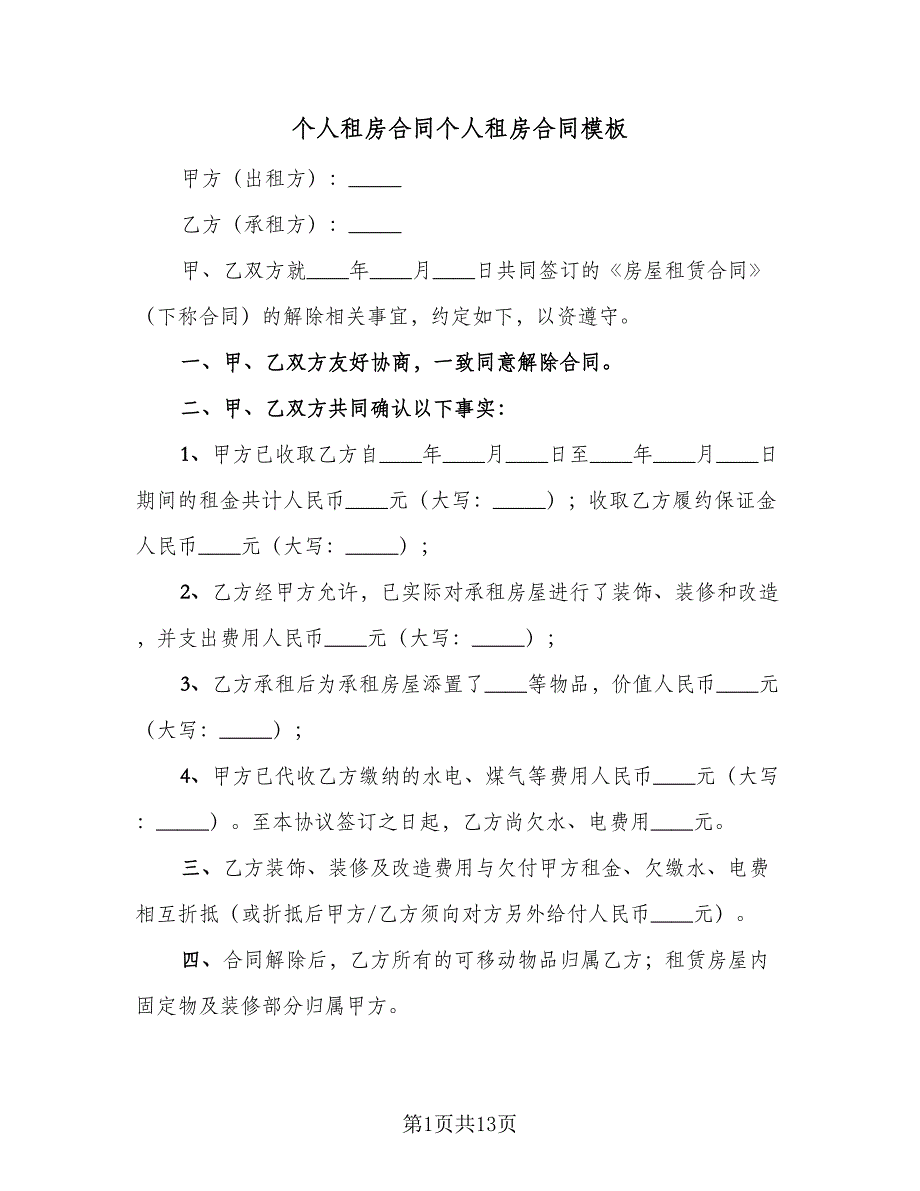 个人租房合同个人租房合同模板
甲方（出租方）：_____
乙方（承租方）：_____
甲、乙双方就____年____月____日共同签订的《房屋租赁合同》
（下称合同）的解除相关事宜，约定如下，以资遵守。
一、甲、乙双方友好协商，一致同意解除合同。
二、甲、乙双方共同确认以下事实：
1、甲方已收取乙方自____年____月____日至____年____月____日
期间的租金共计人民币____元（大写：_____）；收取乙方履约保证金
人民币____元（大写：_____）；
2、乙方经甲方允许，已实际对承租房屋进行了装饰、装修和改造
，并支出费用人民币____元（大写：_____）；
3、乙方承租后为承租房屋添置了____等物品，价值人民币____元
（大写：_____）；
4、甲方已代收乙方缴纳的水电、煤气等费用人民币____元（大写
：_____）。至本协议签订之日起，乙方尚欠水、电费用____元。
三、乙方装饰、装修及改造费用与欠付甲方租金、欠缴水、电费
相互折抵（或折抵后甲方/乙方须向对方另外给付人民币____元）。
四、合同解除后，乙方所有的可移动物品归属乙方；租赁房屋内
固定物及装修部分归属甲方。
第1页共13页